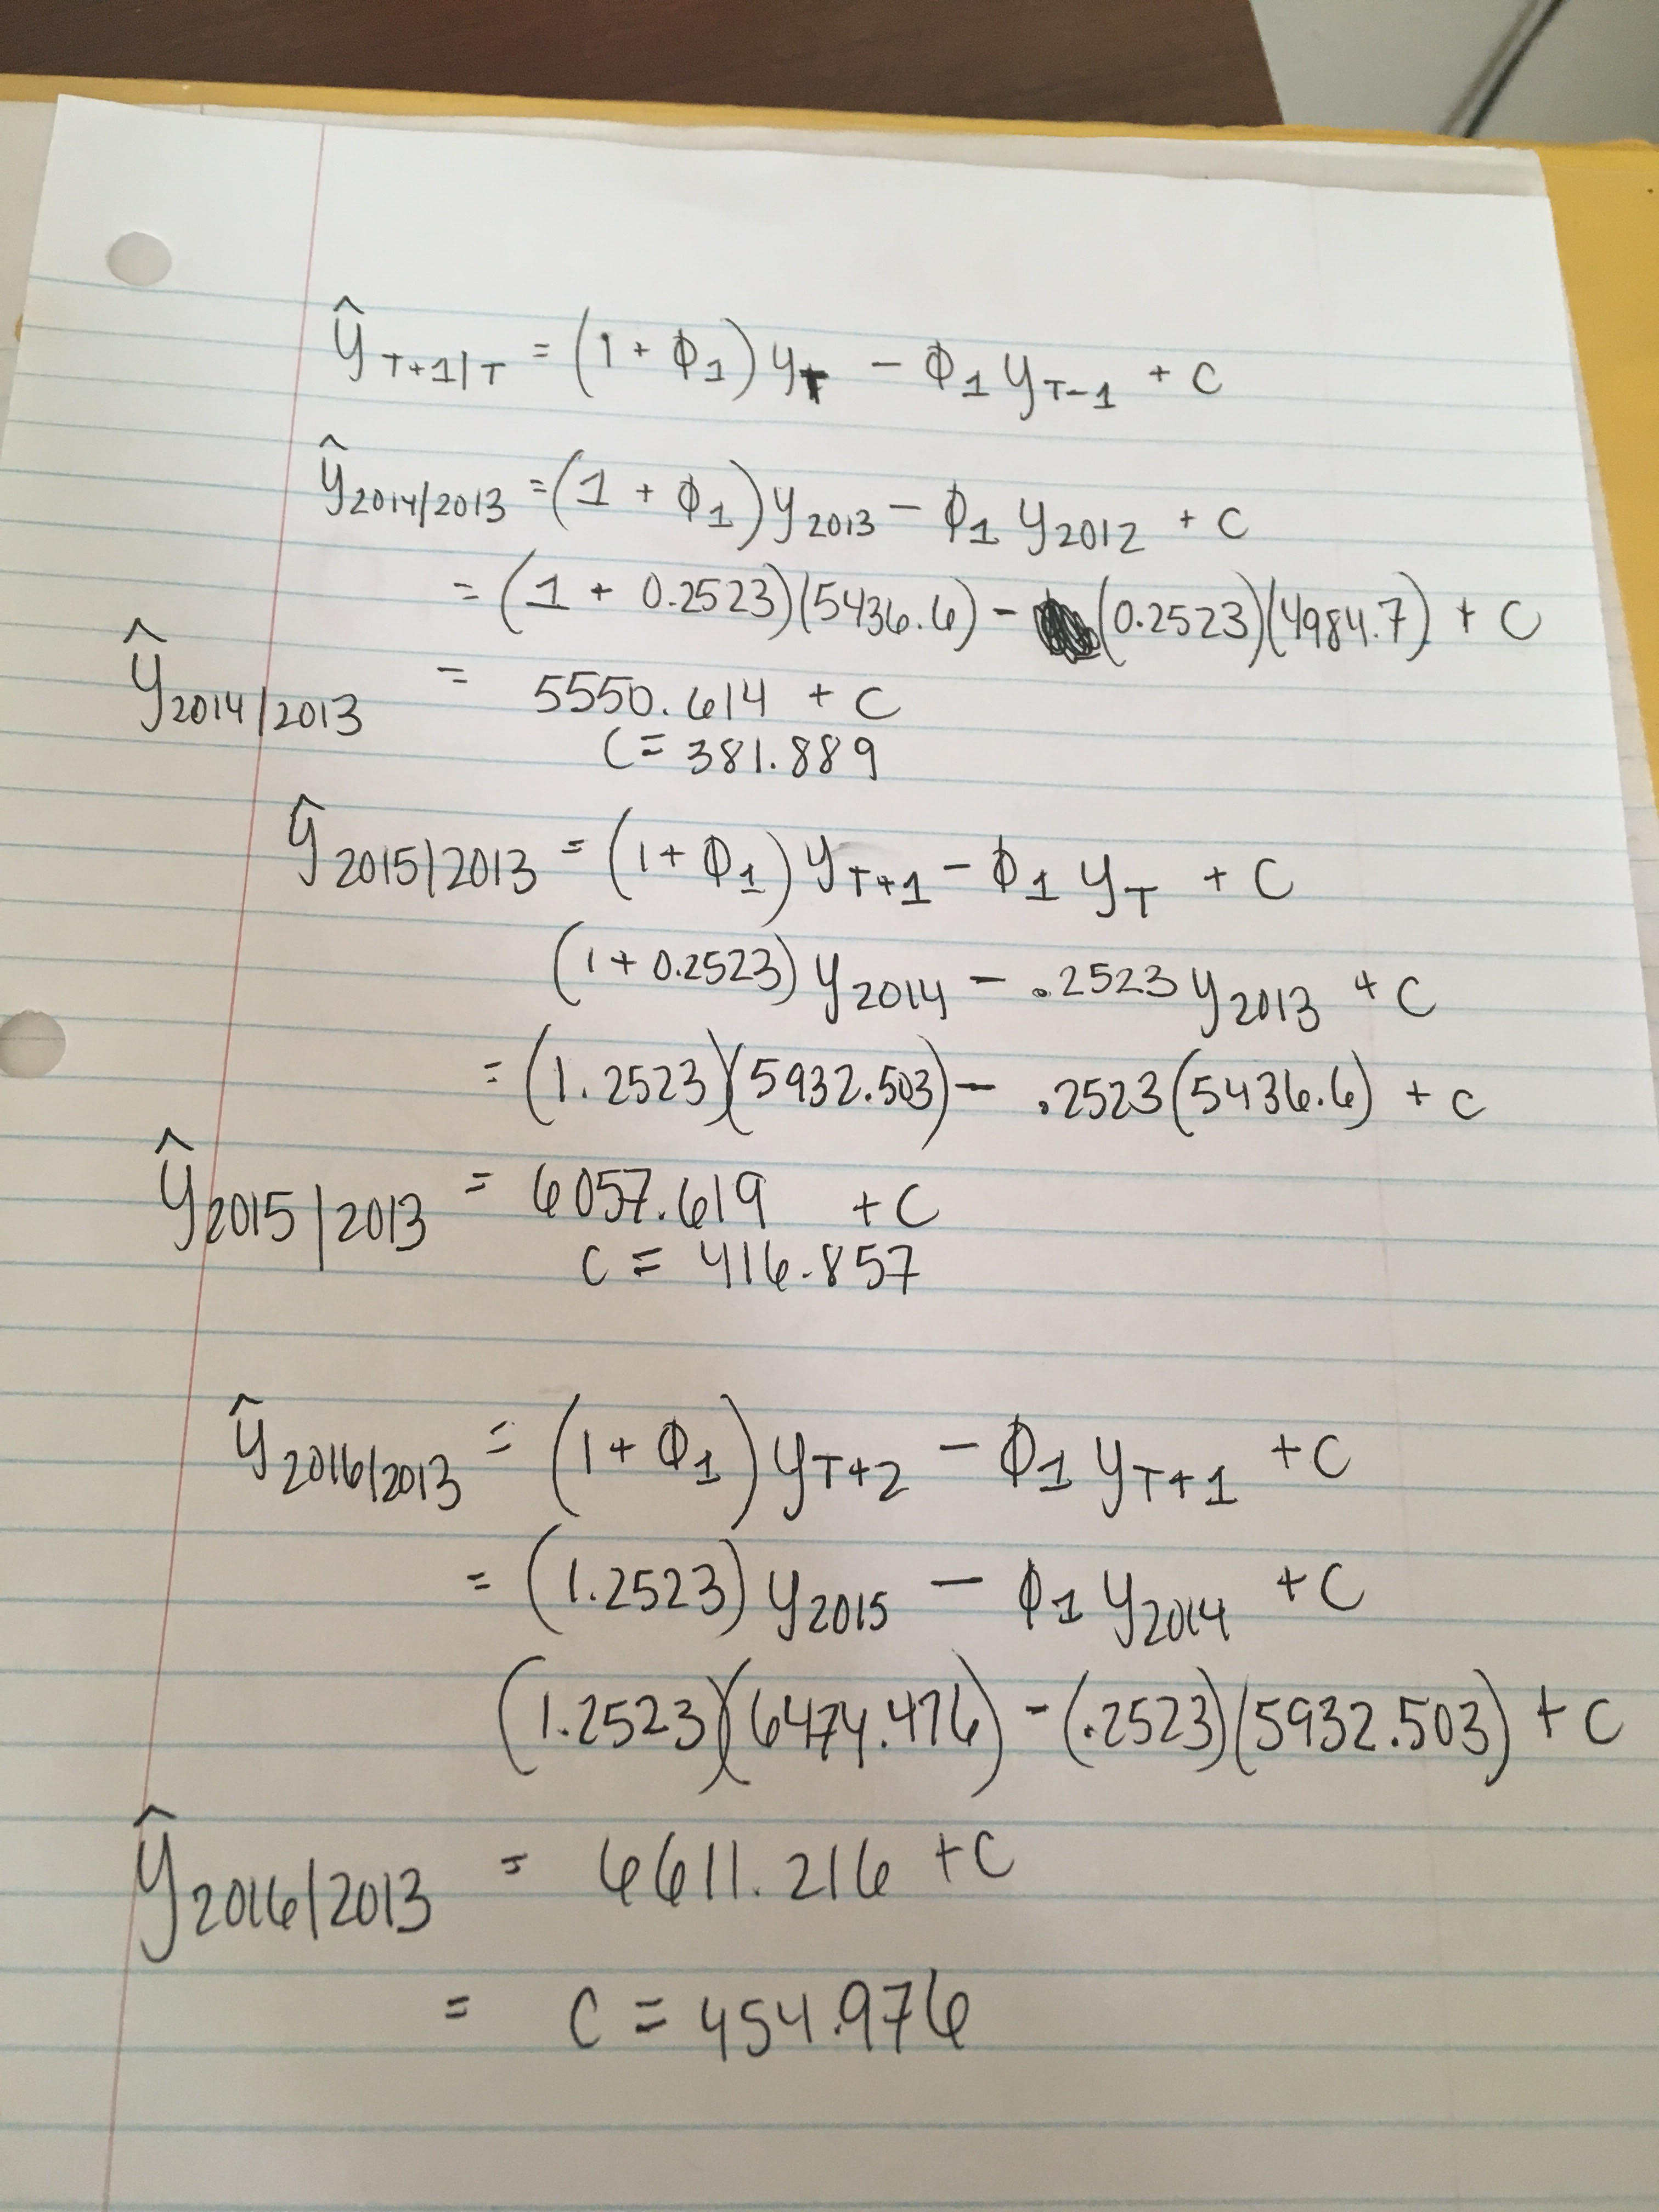 ŷ_{T+1|T} = (1 + ϕ_1) y_T - ϕ_1 y_{T-1} + C
ŷ_{2014/2013} = (1 + ϕ_1) y_{2013} - ϕ_1 y_{2012} + C
= (1 + 0.2523)(5436.6) - (0.2523)(4984.7) + C
ŷ_{2014/2013} = 5550.614 + C
C = 381.889
ŷ_{2015|2013} = (1 + ϕ_1) y_{T+1} - ϕ_1 y_T + C
(1 + 0.2523) y_{2014} - .2523 y_{2013} + C
= (1.2523)(5932.503) - .2523(5436.6) + C
ŷ_{2015|2013} = 6057.619 + C
C = 416.857
ŷ_{2016|2013} = (1 + ϕ_1) y_{T+2} - ϕ_1 y_{T+1} + C
= (1.2523) y_{2015} - ϕ_1 y_{2014} + C
(1.2523)(6474.476) - (.2523)(5932.503) + C
ŷ_{2016|2013} = 6611.216 + C
= C = 454.976